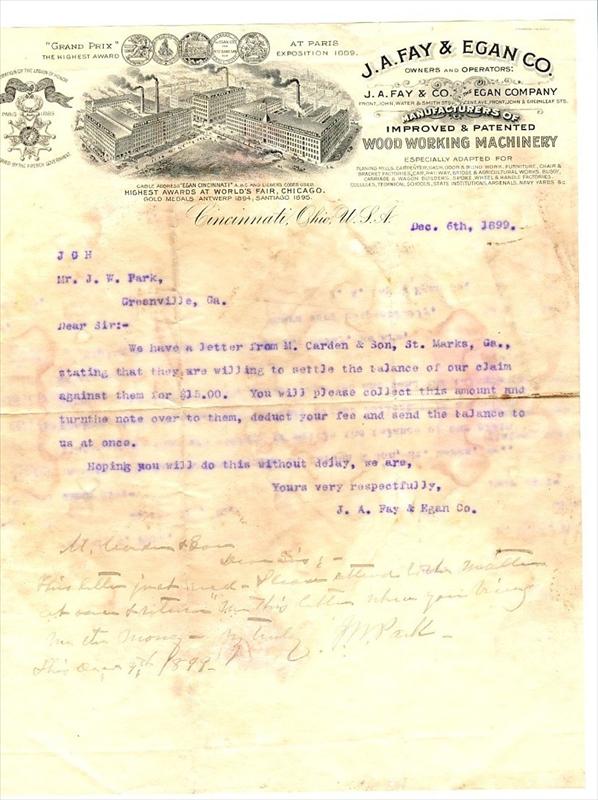 "GRAND PRIX"
THE HIGHEST AWARD
AT PARIS
EXPOSITION 1889.
PARIS 1889
J. A. FAY & EGAN CO.
OWNERS AND OPERATORS:
J. A. FAY & CO. THE EGAN COMPANY
MANUFACTURERS OF
IMPROVED & PATENTED
WOOD WORKING MACHINERY
ESPECIALLY ADAPTED FOR
PLANING MILLS, CARPENTER, SASH, DOOR & BLIND WORK, FURNITURE, CHAIR &
BRACKET FACTORIES, CAR, RAILWAY, BRIDGE & AGRICULTURAL WORKS, BUGGY,
CARRIAGE & WAGON BUILDERS, SPOKE, WHEEL & HANDLE FACTORIES,
COLLEGES, TECHNICAL SCHOOLS, STATE INSTITUTIONS, ARSENALS, NAVY YARDS &c
CABLE ADDRESS "EGAN CINCINNATI" A.B.C. AND LIEBERS CODES USED.
HIGHEST AWARDS AT WORLD'S FAIR, CHICAGO.
GOLD MEDALS ANTWERP 1894, SANTIAGO 1895.
Cincinnati, Ohio, U.S.A.
Dec. 6th, 1899.
J G H
Mr. J. W. Park,
Greenville, Ga.
Dear Sir:-
We have a letter from M. Carden & Son, St. Marks, Ga.,
stating that they are willing to settle the balance of our claim
against them for $15.00. You will please collect this amount and
turnthe note over to them, deduct your fee and send the balance to
us at once.
Hoping you will do this without delay, we are,
Yours very respectfully,
J. A. Fay & Egan Co.
M. Carden & Son
Dear Sirs:-
This letter just recd - Please attend to the matter
at once & return me this letter when you bring
me the money - Yr truly J W Park -
This Decr 9th 1899 -